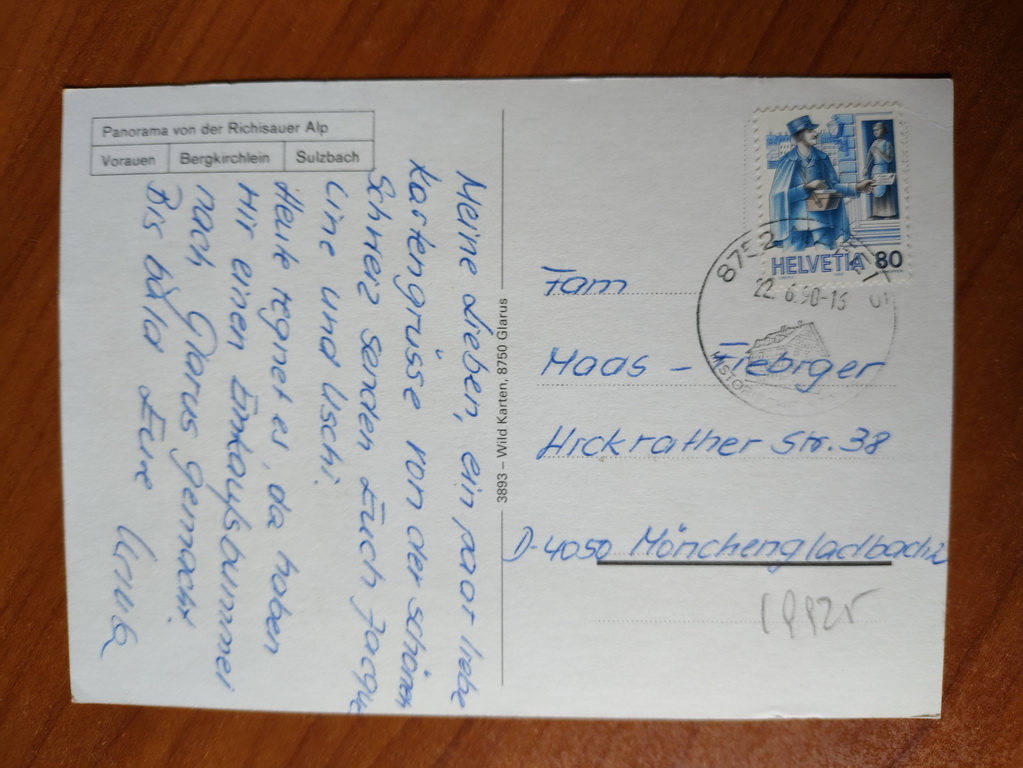 Panorama von der Richisauer Alp
Vorauen Bergkirchlein Sulzbach
Meine Lieben, ein paar liebe
Kartengrüsse von der schönen
Schweiz senden Euch Jacque
line und Uschi.
Heute regnet es, da haben
wir einen Einkaufsbummel
nach Glarus gemacht.
Bis bald Eure
3893 – Wild Karten, 8750 Glarus
HELVETIA 80
8752
22.6.90-15
Fam
Haas - Frebrger
Hickrather Str. 38
D-4050 Mönchengladbach 2